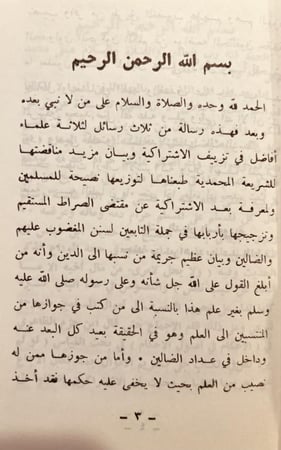 بسم الله الرحمن الرحيم
الحمد لله وحده والصلاة والسلام على من لا نبي بعده
وبعد فهذه رسالة من ثلاث رسائل لثلاثة علماء
أفاضل في تزييف الاشتراكية وبيان مزيد مناقضتها
للشريعة المحمدية طبعناها لتوزيعها نصيحة للمسلمين
ولمعرفة بعد الاشتراكية عن مقتضى الصراط المستقيم
وتزجيجها بأربابها في جملة التابعين لسنن المغضوب عليهم
والضالين وبيان عظيم جريمة من نسبها الى الدين وأنه من
أبلغ القول على الله جل شأنه وعلى رسوله صلى الله عليه
وسلم بغير علم هذا بالنسبة الى من كتب في جوازها من
المنتسبين الى العلم وهو في الحقيقة بعيد كل البعد عنه
وداخل في عداد الضالين . وأما من جوزها ممن له
نصيب من العلم بحيث لا يخفى عليه حكمها فقد أخذ
- ٣ -